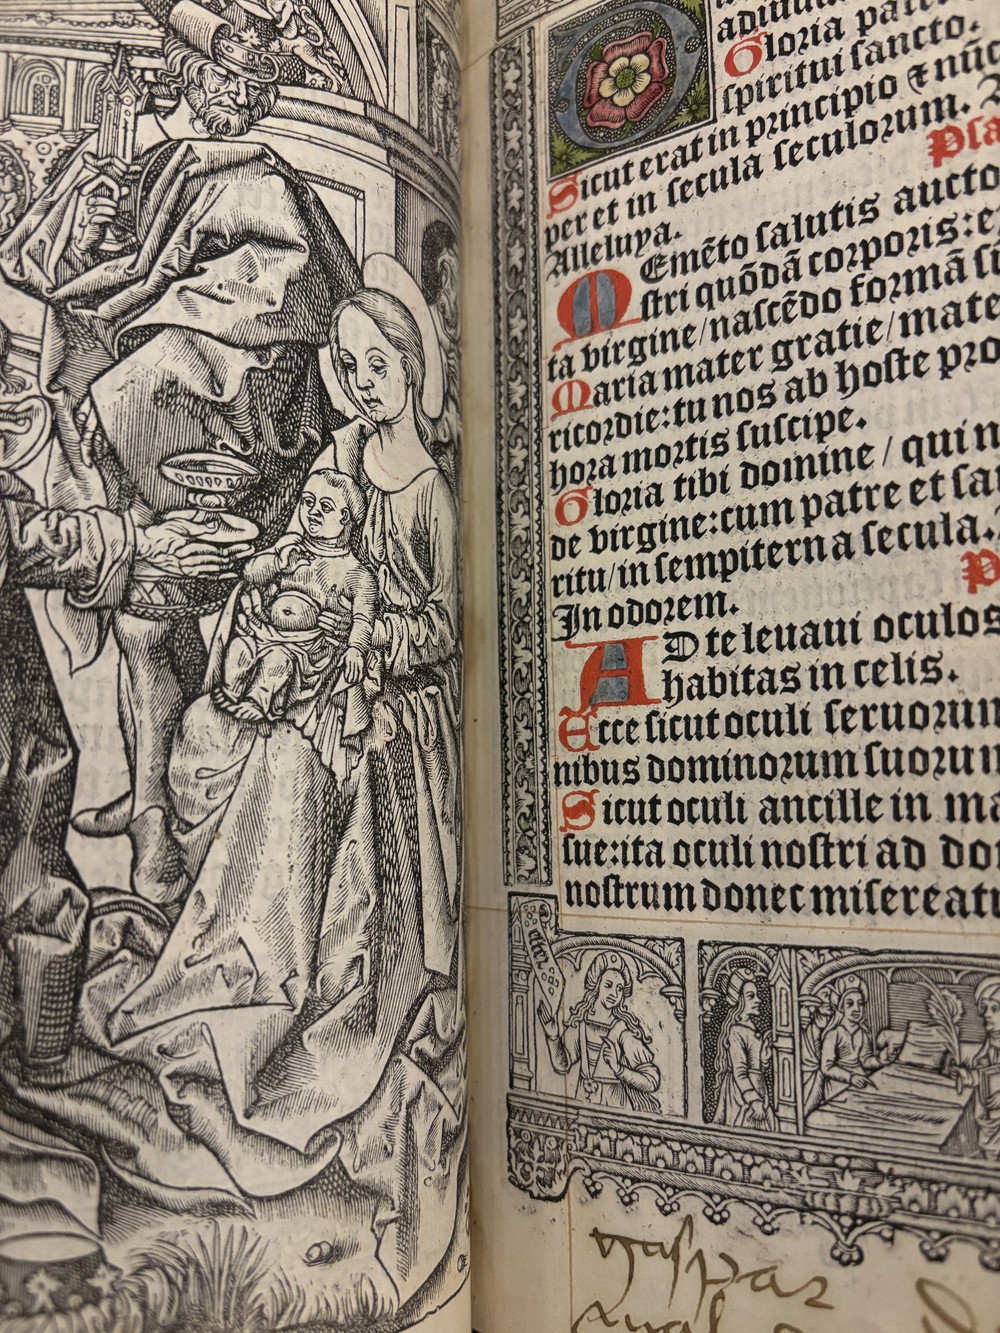 adiuua
Gloria patri
spiritui sancto.
Sicut erat in principio ⁊ nūc
per et in secula seculorum.
Alleluya.
MEmēto salutis aucto
stri quōdā corporis: ex
ta virgine/nascēdo formā
Maria mater gratie/mate
ricordie: tu nos ab hoste pro
hora mortis suscipe.
Gloria tibi domine / qui n
de virgine: cum patre et san
ritu/in sempiterna secula.
In odorem.
AD te leuaui oculos
habitas in celis.
Ecce sicut oculi seruorum
nibus dominorum suorum
Sicut oculi ancille in ma
sue: ita oculi nostri ad do
nostrum donec misereatu